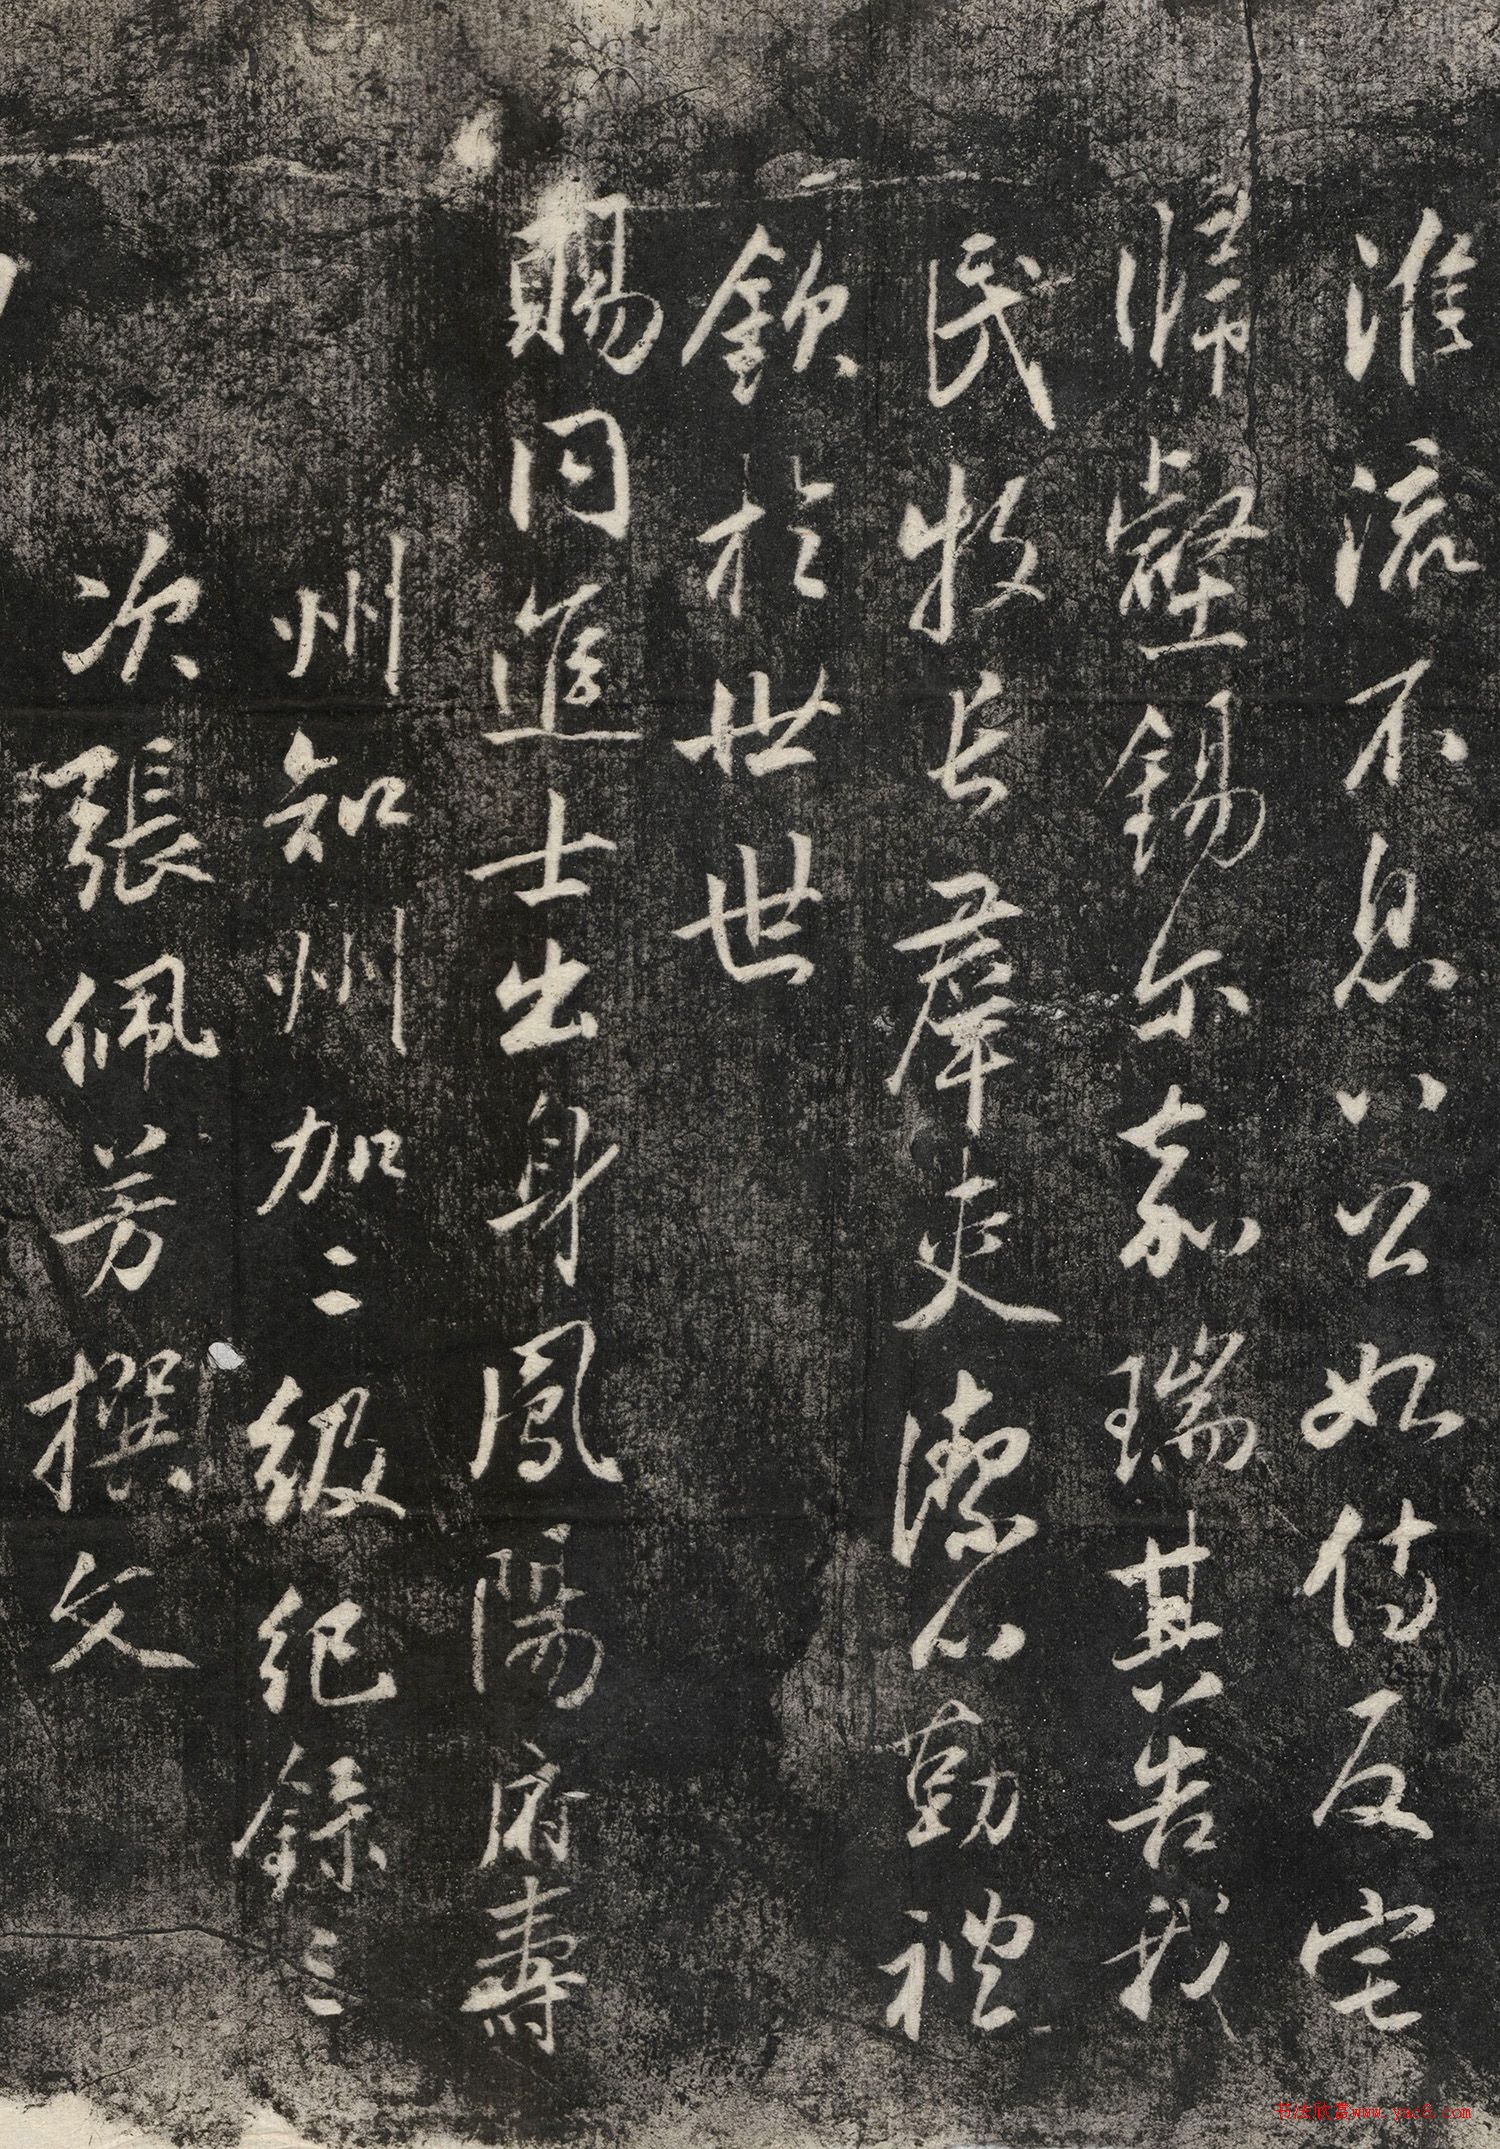 淮流不息八公如侍反宅
歸壑錫尔嘉瑞其告我
民牧長群吏潔心勤禮
欽於世世
賜同進士出身鳳陽府壽
州知州加二級紀錄三
次張佩芳撰文
书法欣赏www.yac8.com